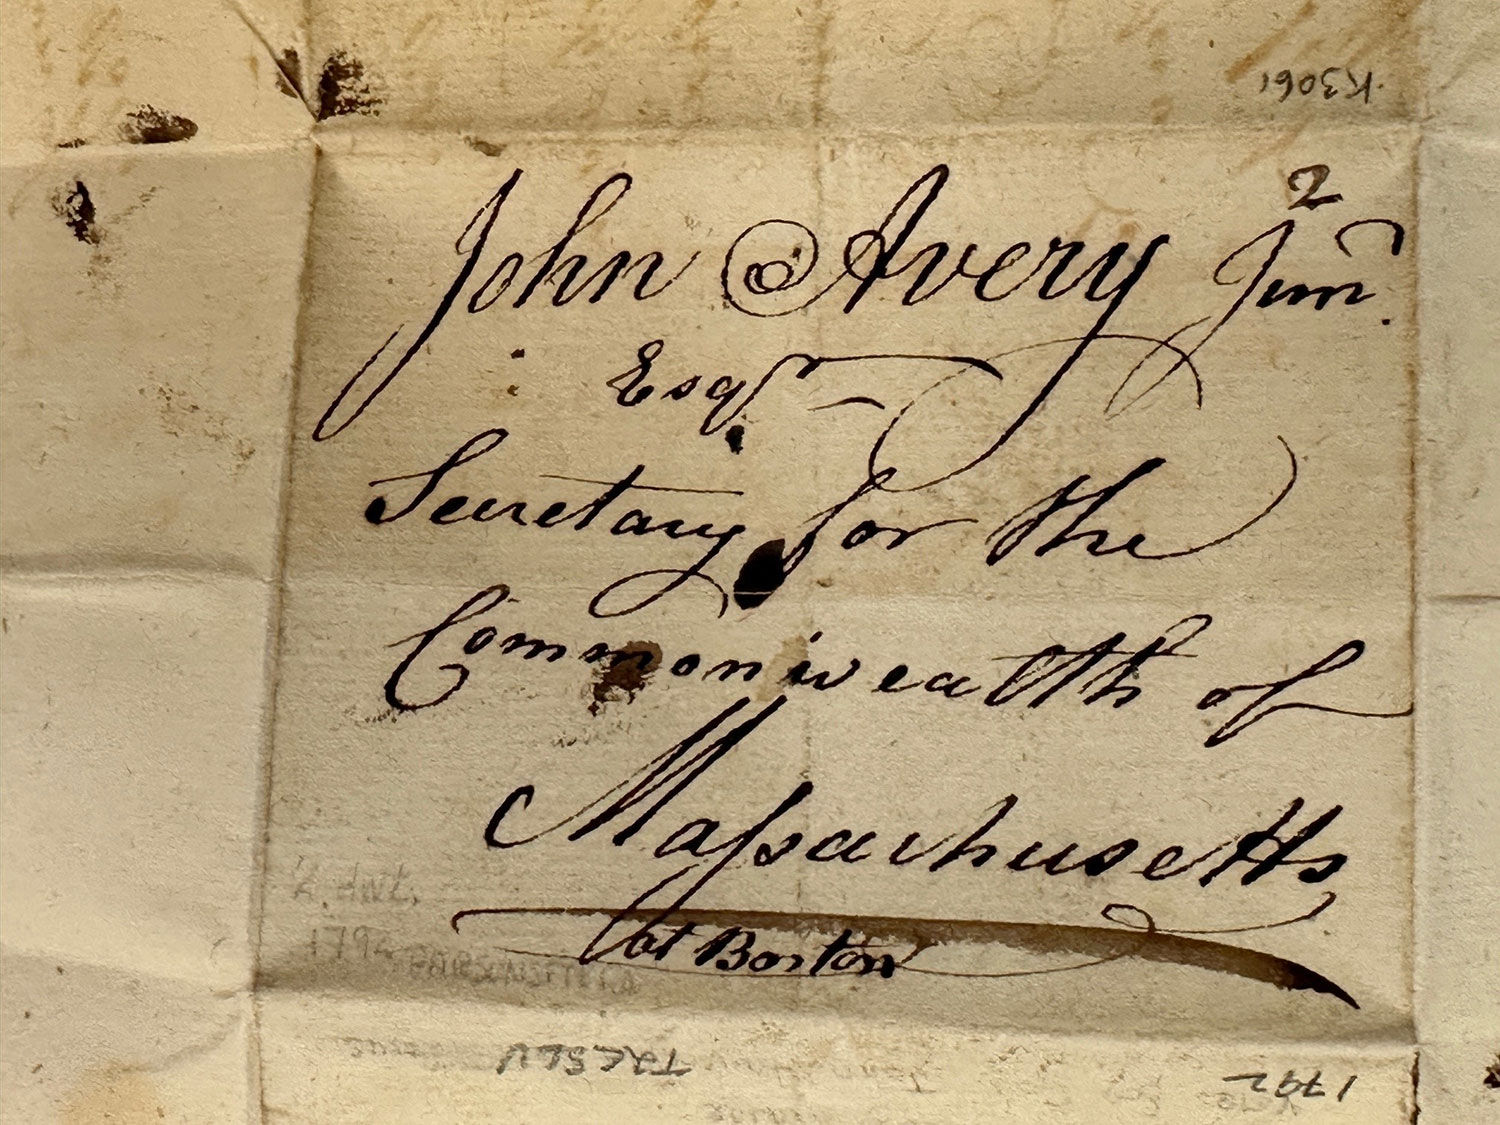 K3061
2
John Avery Junr.
Esqr
Secretary for the
Commonwealth of
Massachusetts
at Boston
1792